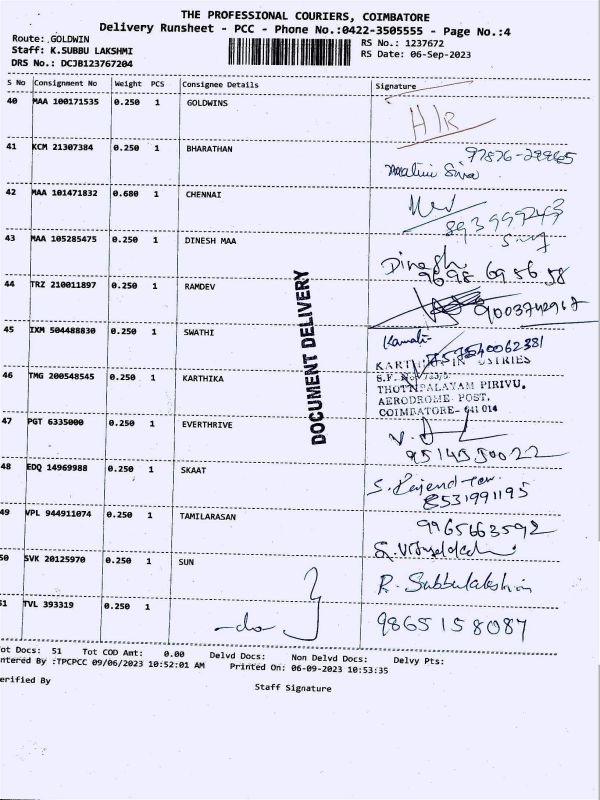 THE PROFESSIONAL COURIERS, COIMBATORE
Delivery Runsheet - PCC - Phone No.:0422-3505555 - Page No.:4
Route: .GOLDWIN
Staff: K.SUBBU LAKSHMI
DRS No.: DCJB123767204
RS No.: 1237672
RS Date: 06-Sep-2023
S No Consignment No Weight PCS Consignee Details Signature
40 MAA 100171535 0.250 1 GOLDWINS
41 KCM 21307384 0.250 1 BHARATHAN
42 MAA 101471832 0.680 1 CHENNAI
43 MAA 105285475 0.250 1 DINESH MAA Dinesh
9698 69 56 58
44 TRZ 210011897 0.250 1 RAMDEV 9003742967
45 IXM 504488830 0.250 1 SWATHI
46 TMG 200548545 1 KARTHIKA
THOTTIPALAYAM PIRIVU,
AERODROME POST,
COIMBATORE- 641 014
47 PGT 6335000 0.250 1 EVERTHRIVE
48 EDQ 14969988 0.250 1 SKAAT
8531991195
49 VPL 944911074 0.250 1 TAMILARASAN 9965663592
50 SVK 20125970 0.250 1 SUN R. Subbulakshmi
51 TVL 393319 0.250 1 -do- 9865158087
DOCUMENT DELIVERY
Tot Docs: 51 Tot COD Amt: 0.00 Delvd Docs: Non Delvd Docs: Delvy Pts:
ntered By :TPCPCC 09/06/2023 10:52:01 AM Printed On: 06-09-2023 10:53:35
erified By
Staff Signature